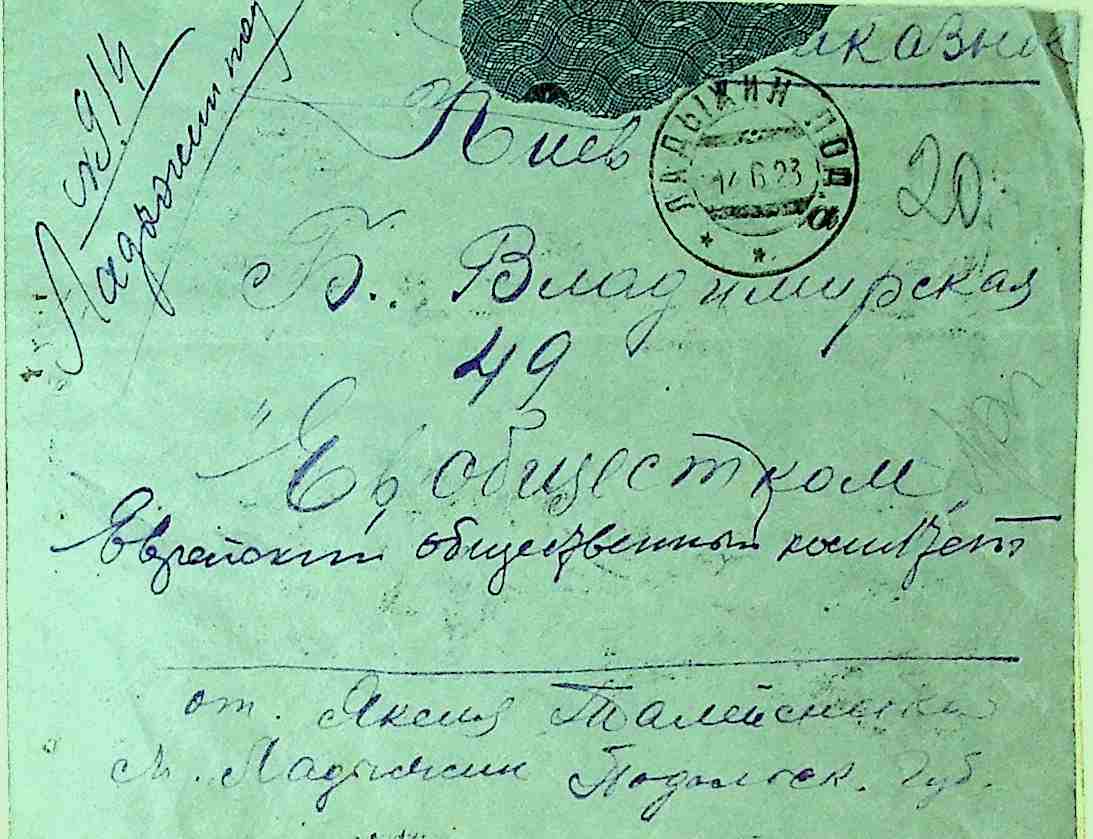 № 914
Ладыжин под
аказное
Киев
ЛАДЫЖИН ПОД.
6 23
а
20
Б. Владимирская
49
"Евобщестком"
Еврейский общественный комитет
от. Талейсника
м. Ладыжин Подольск. Губ.